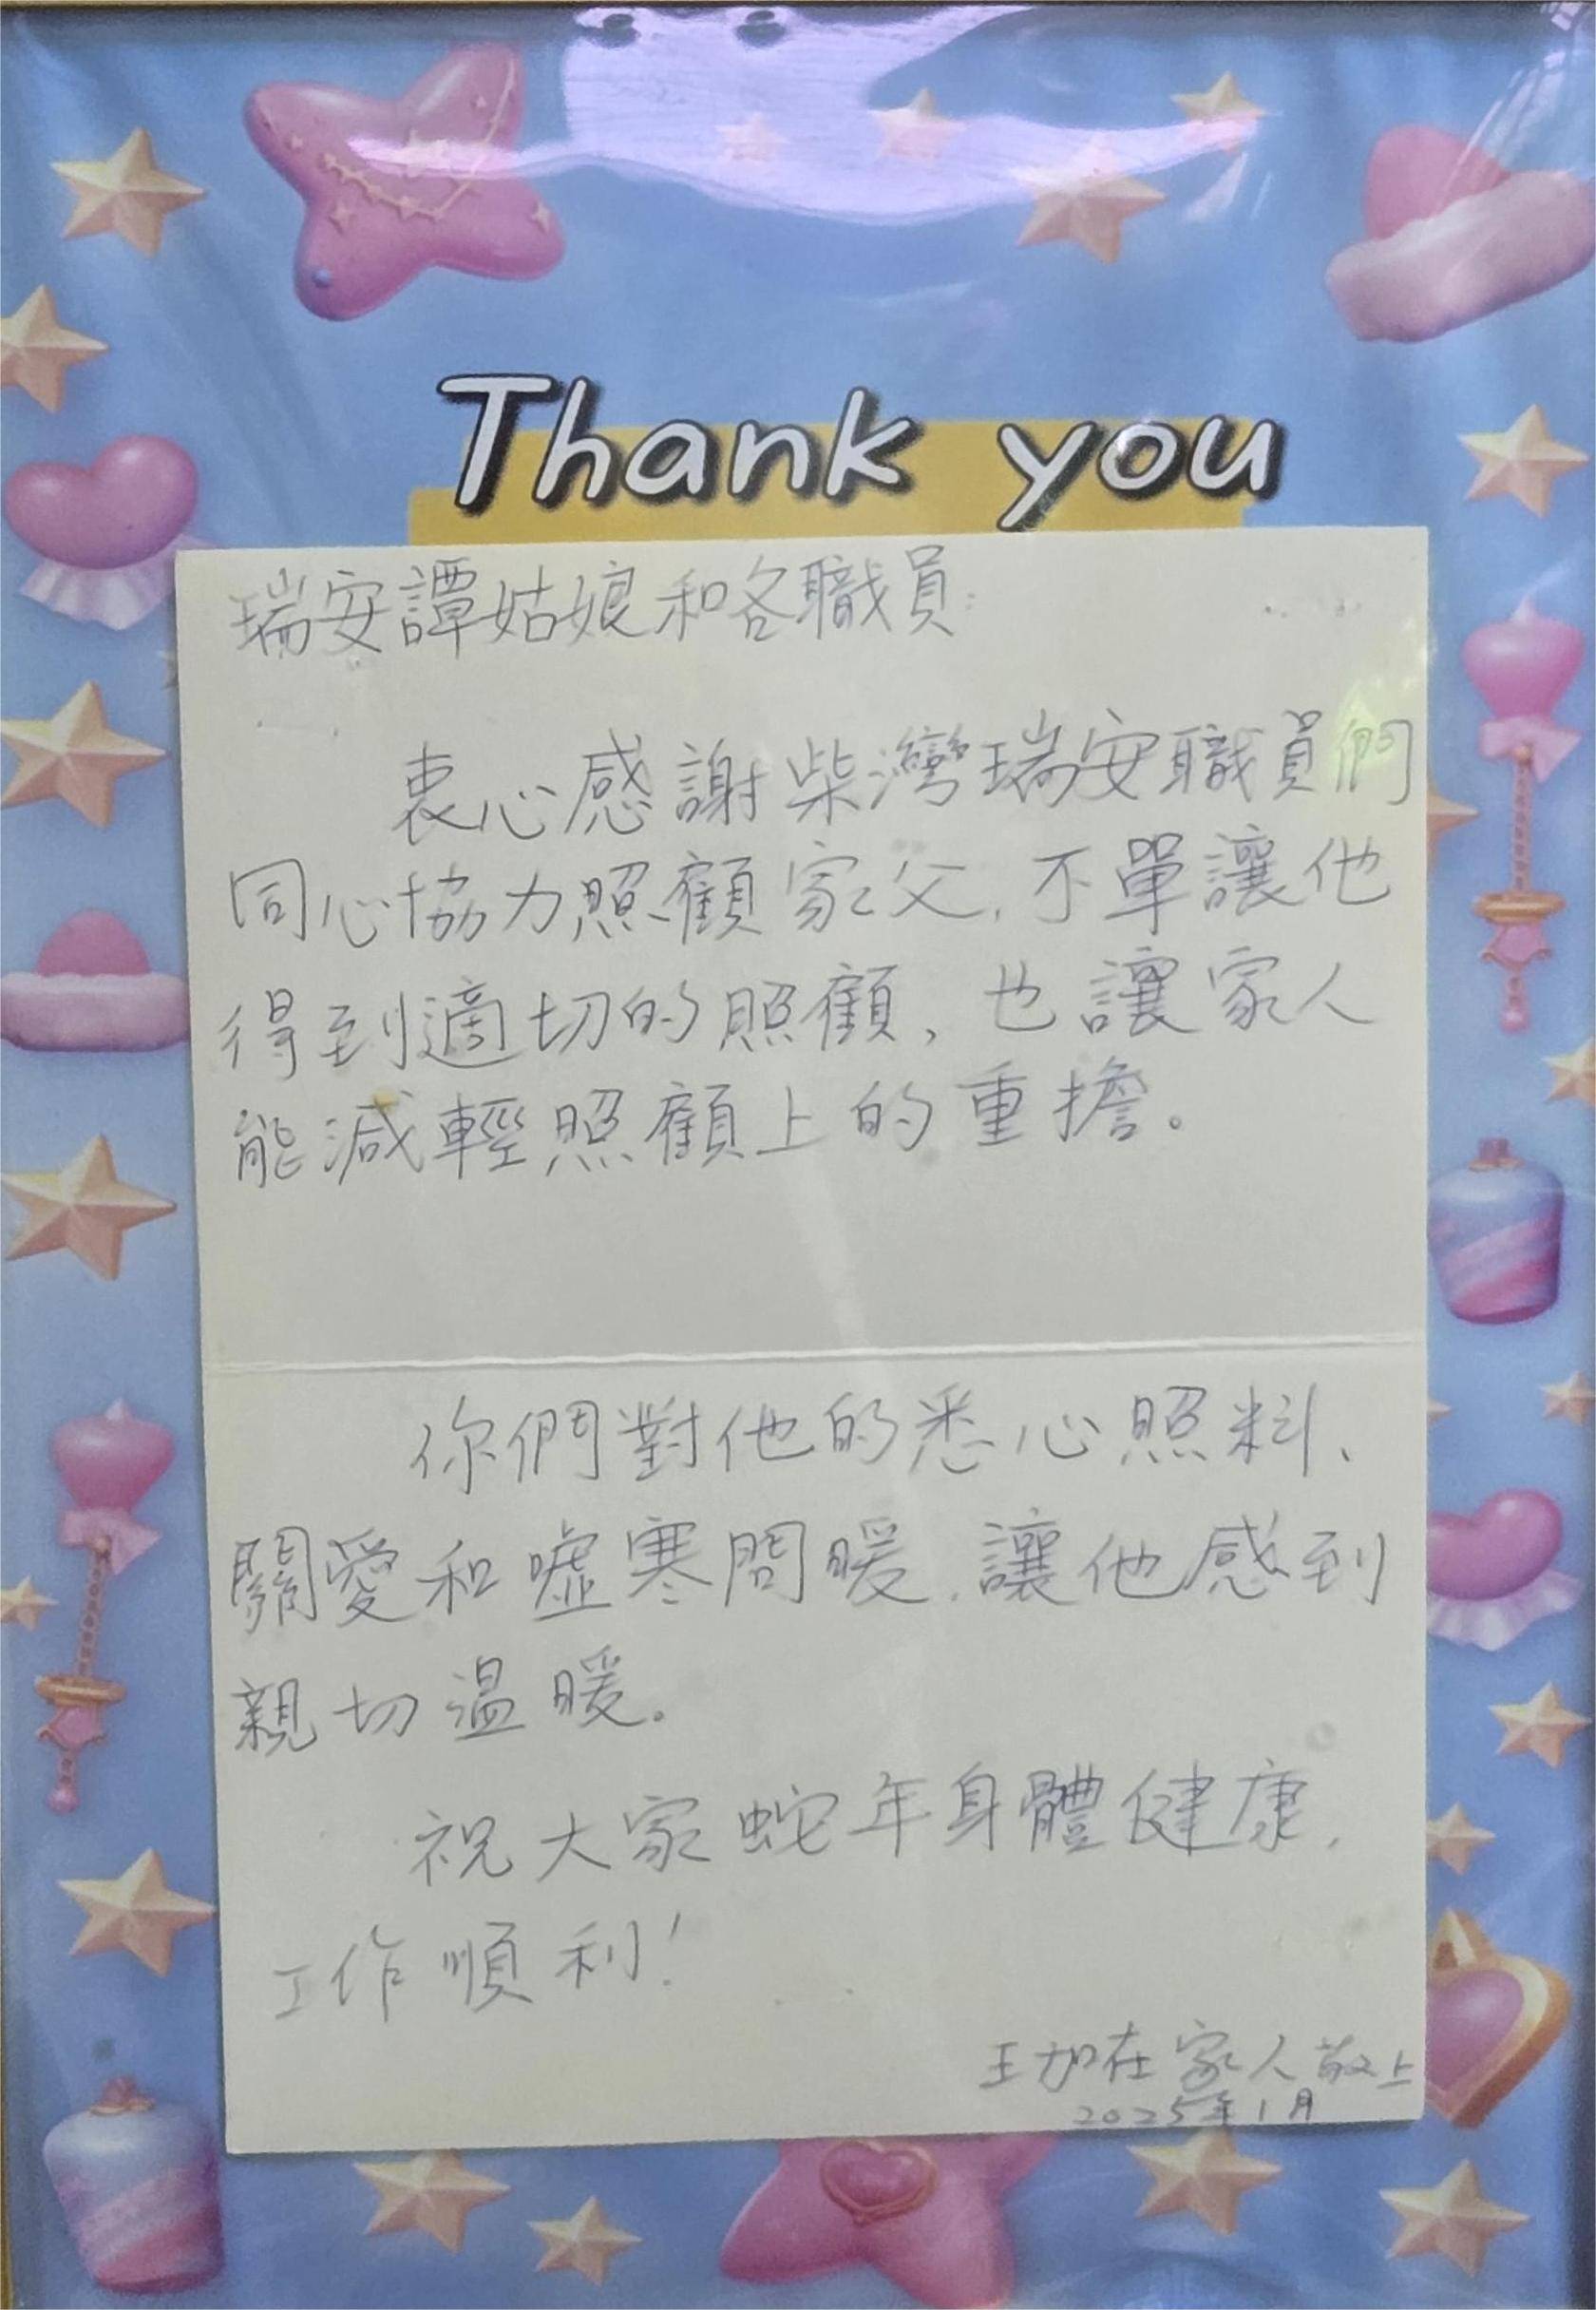 Thank you
瑞安譚姑娘和各職員:
衷心感謝柴灣瑞安職員們
同心協力照顧家父,不單讓他
得到適切的照顧,也讓家人
能減輕照顧上的重擔。
你們對他的悉心照料、
關愛和噓寒問暖,讓他感到
親切溫暖。
祝大家蛇年身體健康,
工作順利!
王加在家人敬上
2025年1月